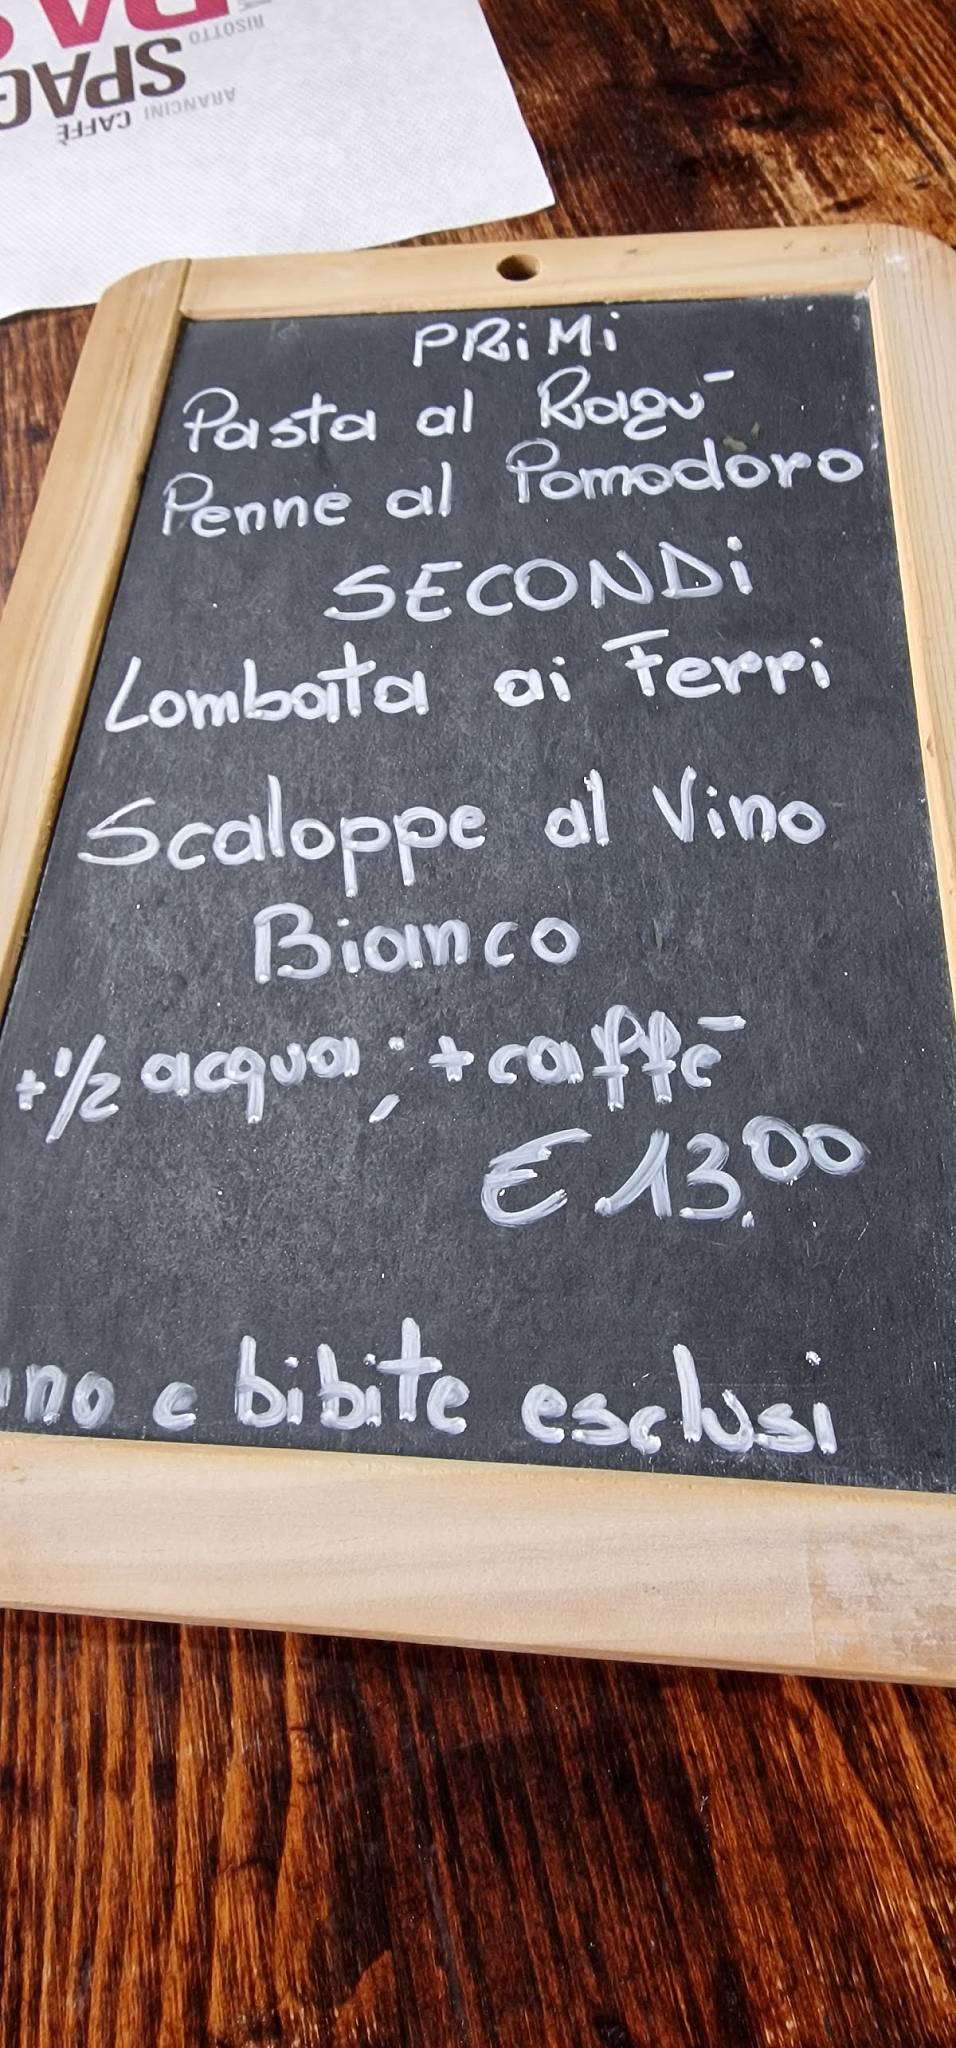 RISOTTO
SPAG
CAFFÈ ARANCINI
PRiMi
Pasta al Ragū
Penne al Pomodoro
SECONDi
Lombata ai Ferri
Scaloppe al Vino
Bianco
+ 1/2 acqua; + caffē
€ 13.00
e bibite esclusi